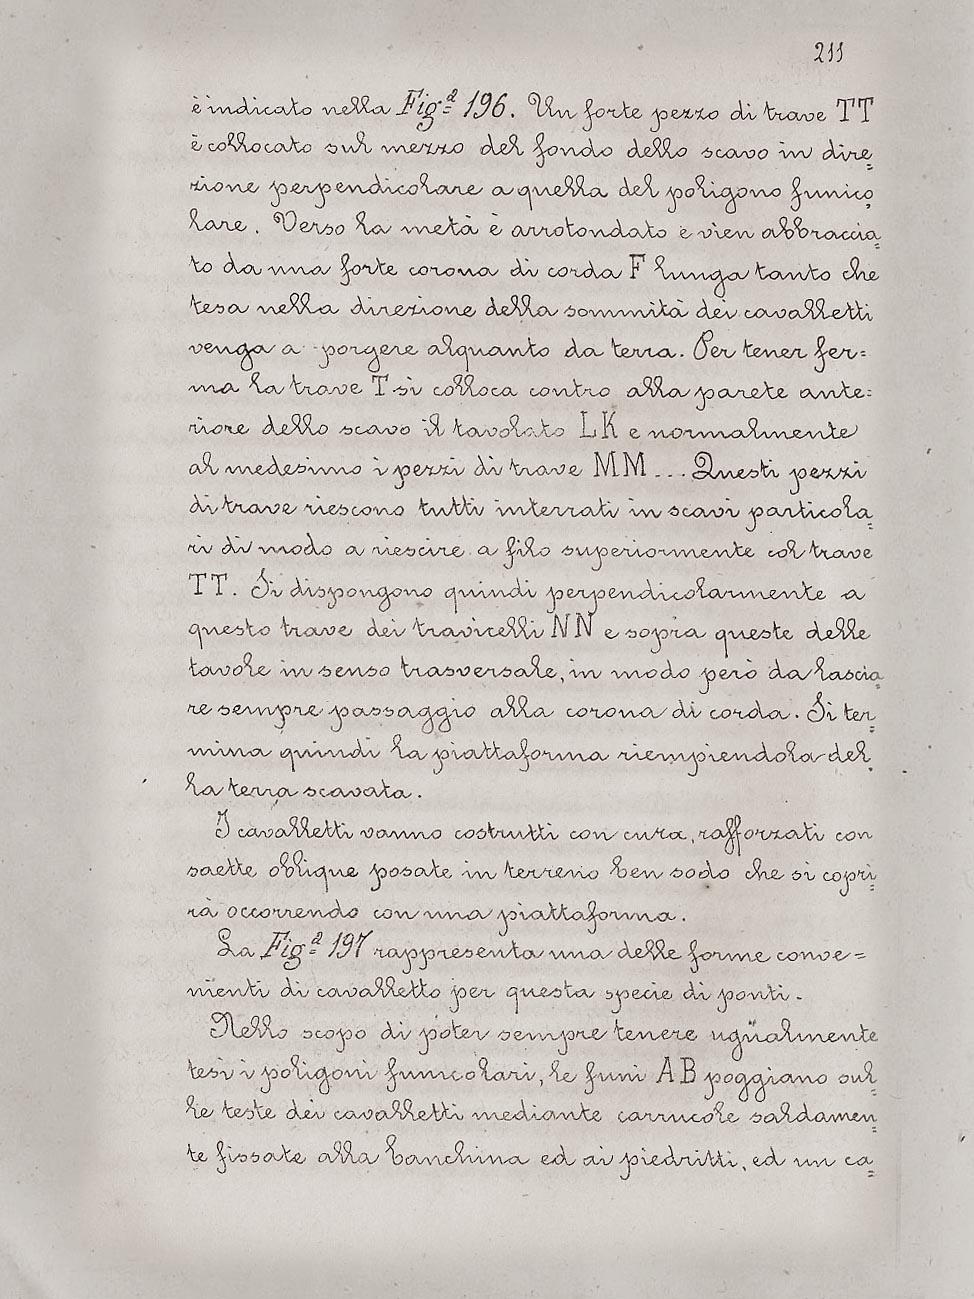 211
è indicato nella Fig.ª 196. Un forte pezzo di trave TT
è collocato sul mezzo del fondo dello scavo in dire=
zione perpendicolare a quella del poligono funico,
lare. Verso la metà è arrotondato e vien abbraccia=
to da una forte corona di corda F lunga tanto che
tesa nella direzione della sommità dei cavalletti
venga a porgere alquanto da terra. Per tener fer=
ma la trave T si colloca contro alla parete ante=
riore dello scavo il tavolato LK e normalmente
al medesimo i pezzi di trave MM ... Questi pezzi
di trave riescono tutti interrati in scavi particola=
ri di modo a riescire a filo superiormente col trave
TT. Si dispongono quindi perpendicolarmente a
questo trave dei travicelli NN e sopra queste delle
tavole in senso trasversale, in modo però da lascia=
re sempre passaggio alla corona di corda. Si ter=
mina quindi la piattaforma riempiendola del,
la terra scavata.
I cavalletti vanno costrutti con cura, rafforzati con
saette oblique posate in terreno ben sodo che si copri=
rà occorrendo con una piattaforma.
La Fig.ª 197 rappresenta una delle forme conve=
nienti di cavalletto per questa specie di ponti.
Nello scopo di poter sempre tenere ugualmente
tesi i poligoni funicolari, le funi AB poggiano sul=
le teste dei cavalletti mediante carrucole saldamen=
te fissate alla banchina ed ai piedritti, ed un ca=